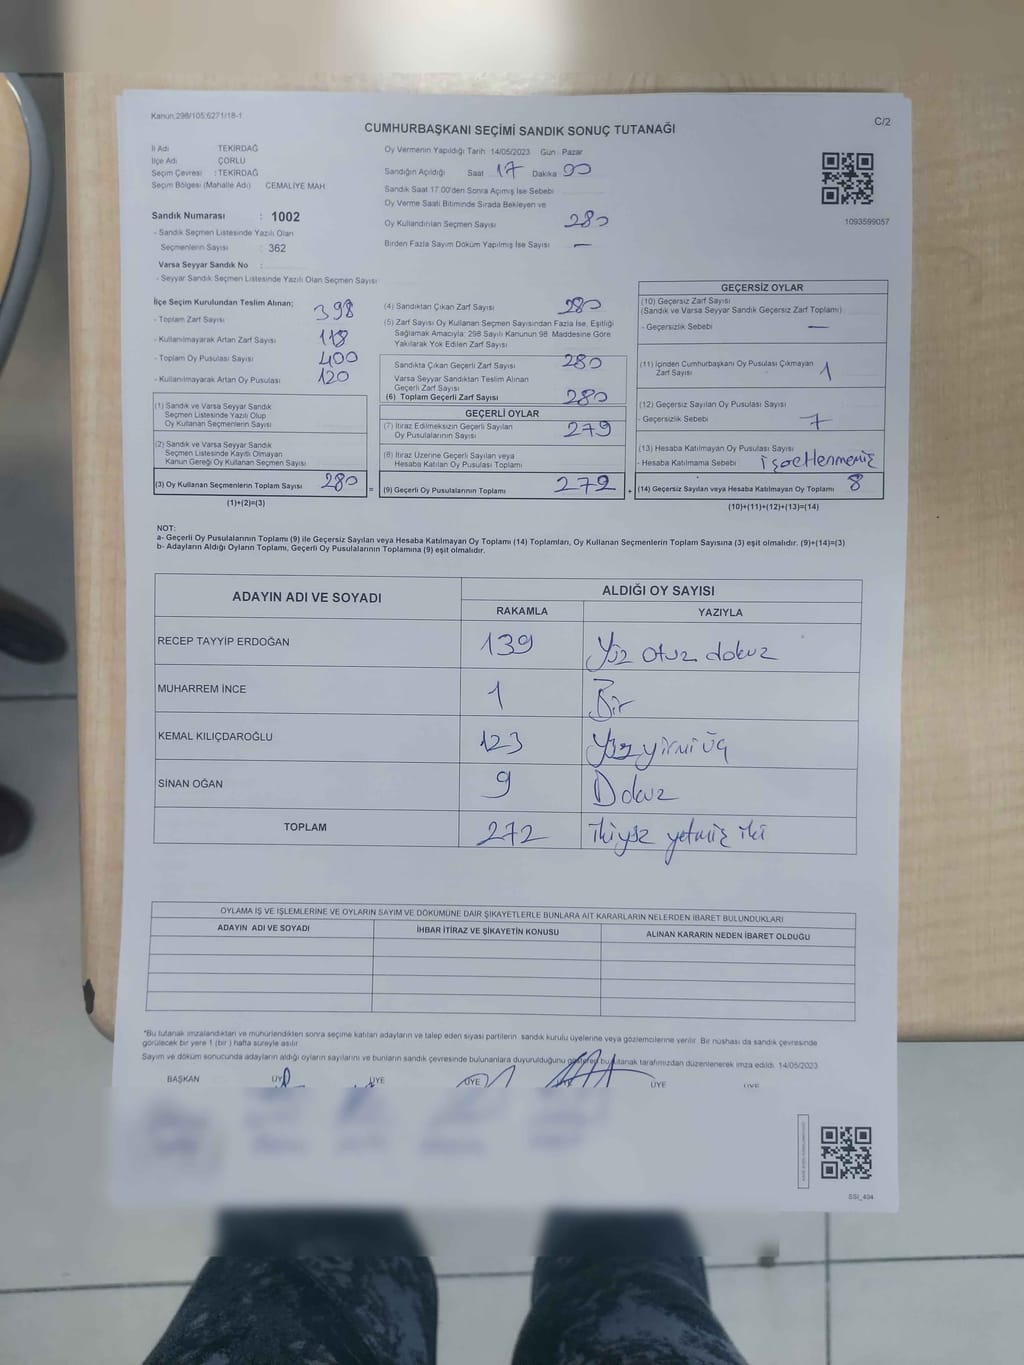 Kanun,298/105;6271/18-1
CUMHURBAŞKANI SEÇİMİ SANDIK SONUÇ TUTANAĞI
C/2
İl Adı TEKİRDAĞ
İlçe Adı ÇORLU
Seçim Çevresi : TEKİRDAĞ
Seçim Bölgesi (Mahalle Adı) CEMALİYE MAH
Sandık Numarası : 1002
- Sandık Seçmen Listesinde Yazılı Olan
Seçmenlerin Sayısı : 362
Varsa Seyyar Sandık No :
- Seyyar Sandık Seçmen Listesinde Yazılı Olan Seçmen Sayısı
Oy Vermenin Yapıldığı Tarih 14/05/2023 Gün: Pazar
Sandığın Açıldığı Saat 17 Dakika 00
Sandık Saat 17.00'den Sonra Açımış İse Sebebi
Oy Verme Saati Bitiminde Sırada Bekleyen ve
Oy Kullandırılan Seçmen Sayısı 280
Birden Fazla Sayım Döküm Yapılmış İse Sayısı —
1093599057
İlçe Seçim Kurulundan Teslim Alınan;
- Toplam Zarf Sayısı 398
- Kullanılmayarak Artan Zarf Sayısı 118
- Toplam Oy Pusulası Sayısı 400
- Kullanılmayarak Artan Oy Pusulası 120
(1) Sandık ve Varsa Seyyar Sandık
Seçmen Listesinde Yazılı Olup
Oy Kullanan Seçmenlerin Sayısı
(2) Sandık ve Varsa Seyyar Sandık
Seçmen Listesinde Kayıtlı Olmayan
Kanun Gereği Oy Kullanan Seçmen Sayısı
(3) Oy Kullanan Seçmenlerin Toplam Sayısı 280 =
(1)+(2)=(3)
(4) Sandıktan Çıkan Zarf Sayısı 280
(5) Zarf Sayısı Oy Kullanan Seçmen Sayısından Fazla İse, Eşitliği
Sağlamak Amacıyla; 298 Sayılı Kanunun 98. Maddesine Göre
Yakılarak Yok Edilen Zarf Sayısı
Sandıkta Çıkan Geçerli Zarf Sayısı 280
Varsa Seyyar Sandıktan Teslim Alınan
Geçerli Zarf Sayısı
(6) Toplam Geçerli Zarf Sayısı 280
GEÇERLİ OYLAR
(7) İtiraz Edilmeksizin Geçerli Sayılan
Oy Pusulalarının Sayısı 279
(8) İtiraz Üzerine Geçerli Sayılan veya
Hesaba Katılan Oy Pusulası Toplamı
(9) Geçerli Oy Pusulalarının Toplamı 272 +
GEÇERSİZ OYLAR
(10) Geçersiz Zarf Sayısı
(Sandık ve Varsa Seyyar Sandık Geçersiz Zarf Toplamı)
- Geçersizlik Sebebi —
(11) İçinden Cumhurbaşkanı Oy Pusulası Çıkmayan
Zarf Sayısı 1
(12) Geçersiz Sayılan Oy Pusulası Sayısı
- Geçersizlik Sebebi 7
(13) Hesaba Katılmayan Oy Pusulası Sayısı
- Hesaba Katılmama Sebebi
(14) Geçersiz Sayılan veya Hesaba Katılmayan Oy Toplamı 8
(10)+(11)+(12)+(13)=(14)
NOT:
a- Geçerli Oy Pusulalarının Toplamı (9) ile Geçersiz Sayılan veya Hesaba Katılmayan Oy Toplamı (14) Toplamları, Oy Kullanan Seçmenlerin Toplam Sayısına (3) eşit olmalıdır. (9)+(14)=(3)
b- Adayların Aldığı Oyların Toplamı, Geçerli Oy Pusulalarının Toplamına (9) eşit olmalıdır.
ADAYIN ADI VE SOYADI
ALDIĞI OY SAYISI
RAKAMLA YAZIYLA
RECEP TAYYİP ERDOĞAN 139 Yüz otuz dokuz
MUHARREM İNCE 1 Bir
KEMAL KILIÇDAROĞLU 123 Yüz yirmi üç
SİNAN OĞAN 9 Dokuz
TOPLAM 272 ikiyüz yetmiş iki
OYLAMA İŞ VE İŞLEMLERİNE VE OYLARIN SAYIM VE DÖKÜMÜNE DAİR ŞİKAYETLERLE BUNLARA AİT KARARLARIN NELERDEN İBARET BULUNDUKLARI
ADAYIN ADI VE SOYADI İHBAR İTİRAZ VE ŞİKAYETİN KONUSU ALINAN KARARIN NEDEN İBARET OLDUĞU
*Bu tutanak imzalandıktan ve mühürlendikten sonra seçime katılan adayların ve talep eden siyasi partilerin sandık kurulu üyelerine veya gözlemcilerine verilir. Bir nüshası da sandık çevresinde
görülecek bir yere 1 (bir) hafta süreyle asılır.
Sayım ve döküm sonucunda adayların aldığı oyların sayılarını ve bunların sandık çevresinde bulunanlara duyurulduğunu gösteren bu tutanak tarafımızdan düzenlenerek imza edildi. 14/05/2023
BAŞKAN ÜYE ÜYE ÜYE ÜYE ÜYE
SSI_404